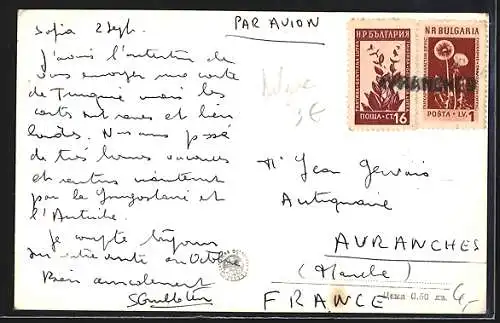 Sofia 2 Sept.
PAR AVION
J'avais l'intention de
vous envoyer une carte
de Turquie mais les
cartes sont rares et bien
laides. Nous avons passé
de très bonnes vacances
et rentrons maintenant
par la Yougoslavie et
l'Autriche.
Je compte toujours
sur votre vente en Octobre
Bien amicalement
НР БЪЛГАРИЯ
ПОЩА • СТ. 16
NR BULGARIA
POSTA • LV. 1
AVRANCHES
3€
Mr Jean Gervais
Antiquaire
AVRANCHES
(Manche)
FRANCE
Цена 0.50 лв.
6,-